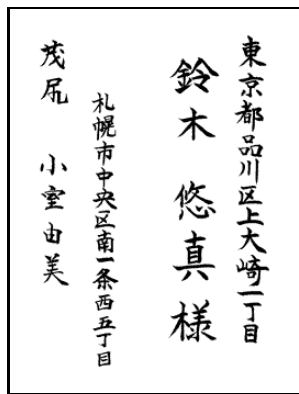 東京都品川区上大崎一丁目
鈴木 悠真様
札幌市中央区南一条西五丁目
茂尻 小室由美